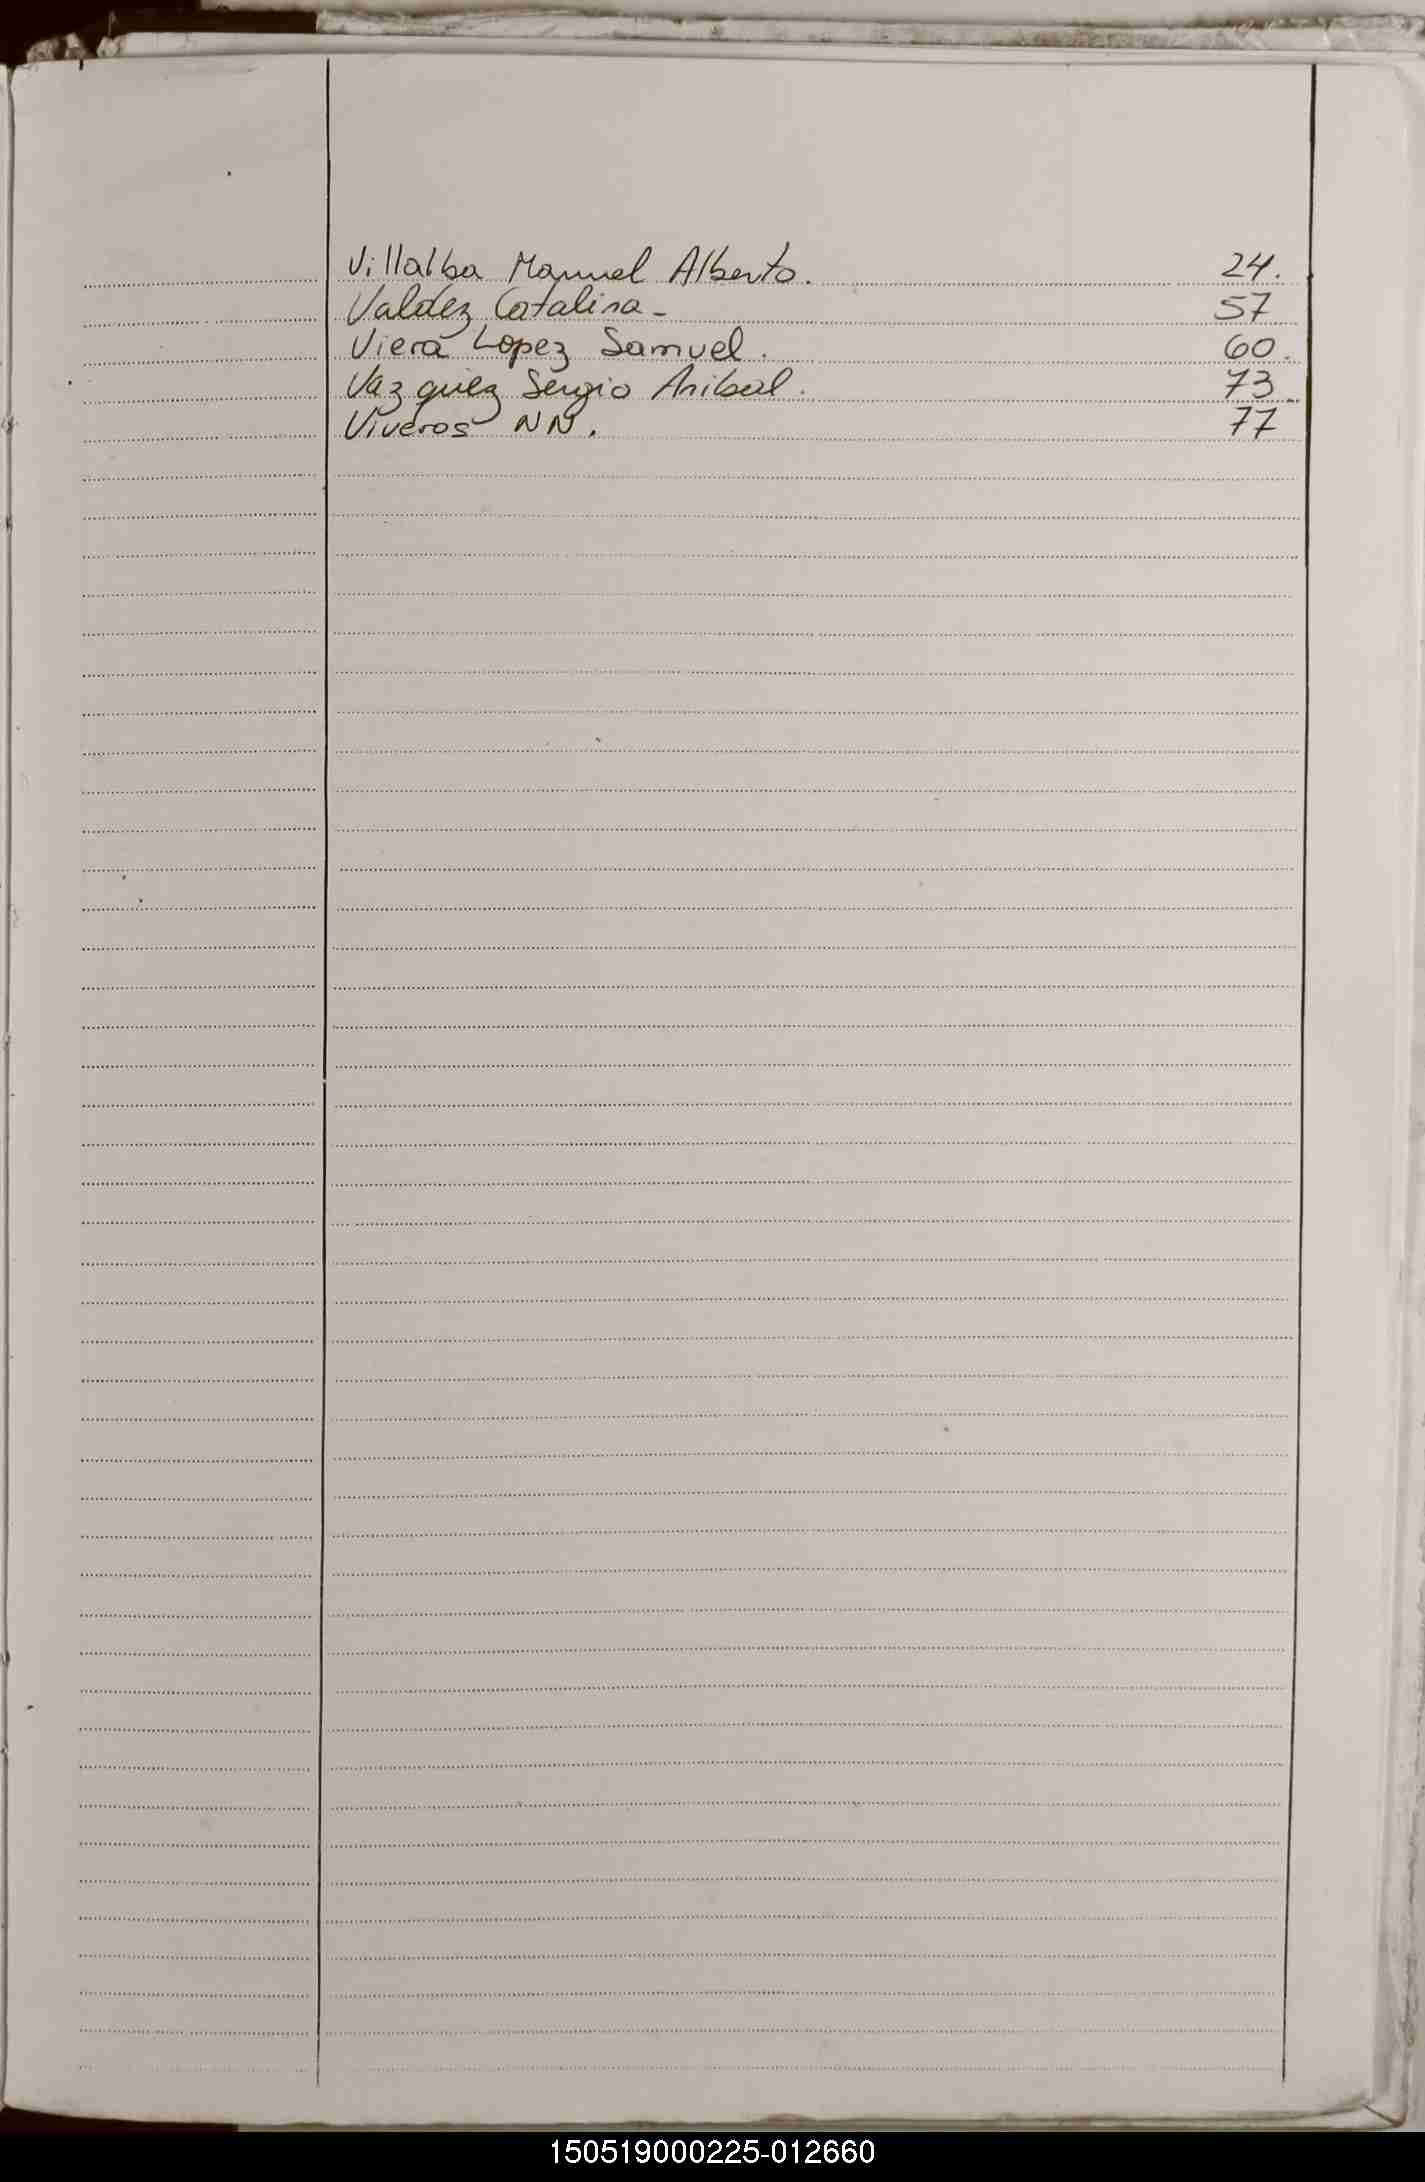 Villalba Manuel Alberto. 24.
Valdez Catalina - 57
Viera Lopez Samuel. 60.
Vazquez Sergio Anibal. 73
Viveros NN. 77
150519000225-012660